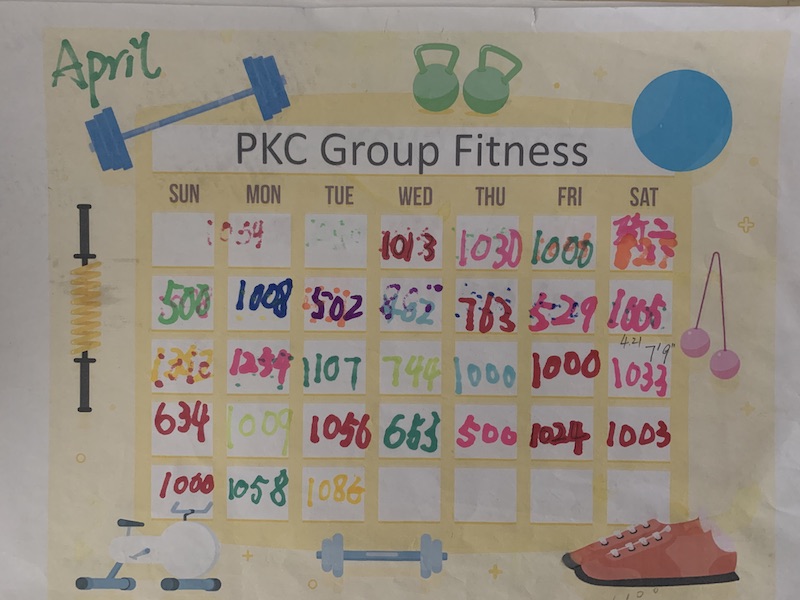 April
PKC Group Fitness
SUN MON TUE WED THU FRI SAT
1034 1013 1030 1000
500 1008 502 763 529 1005
1234 1107 744 1000 1000 4.21 7'9" 1033
634 1009 1056 653 500 1024 1003
1000 1058 1086